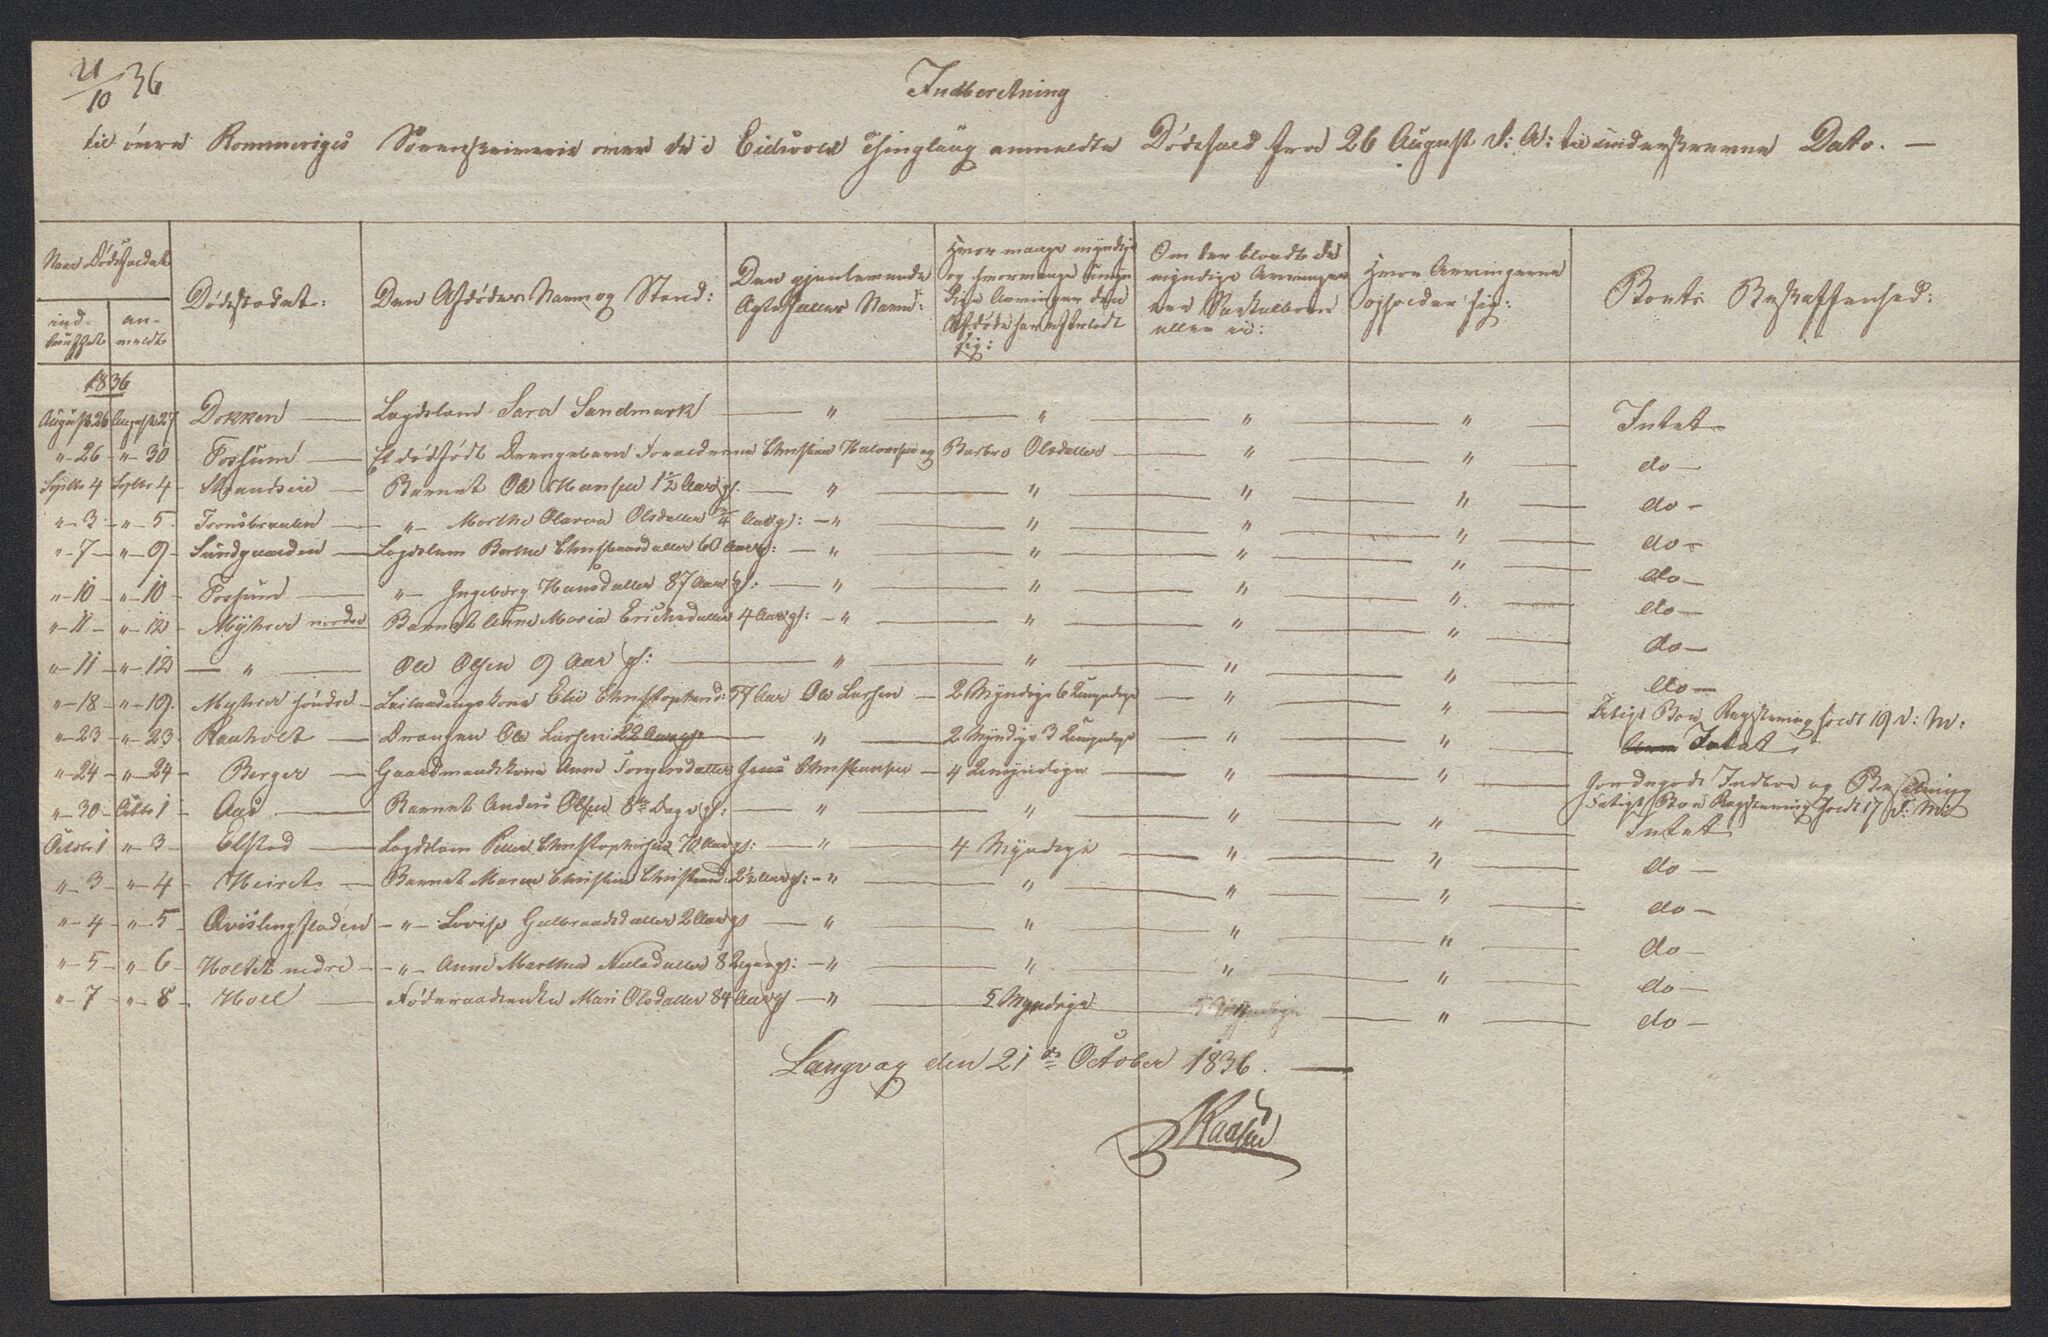 21/10 36
Indberetning
til øvre Rommeriges Sorenskriverie over de i Eidsvold Thinglaug anmeldte Dødsfald fra 26 August d: A: til underskrevne Dato. —
Naar Dødsfaldet
ind-
truffet
an-
meldt
Dødsstedet:
Den Afdødes Navn og Stand:
Den gjenlevende
Ægtefælles Navn:
Hvor mange myndige
og hvormange Umyn
dige Arvinger den
Afdøde har efterladt
sig:
Om der blandt de
myndige Arvinger
ere
eller ei:
Hvor Arvingerne
opholder sig:
Boets Beskaffenhed:
1836
August 26 August 27 Dokken — Lægdslem Sara Sandmark — " — " — " — " — Intet
" 26 " 30 Fossum — Et dødfødt Drengebarn Forældrene Christian Halvorsen og Barbro Olsdatter — " — " — do —
Septbr 4 Septbr 4 — Barnet Ole Hansen 1 1/2 Aar gl: — " — " — " — " — do —
" 3 " 5 — " — Marthe Olava Olsdatter 3/4 Aar gl: — " — " — " — " — do —
" 7 " 9 Sundgaarden — Lægdslem Berthe Christiansdatter 60 Aar gl: — " — " — " — " — do —
" 10 " 10 Fossum — " — Ingeborg Hansdatter 87 Aar gl: — " — " — " — " — do —
" 11 " 12 Myhrer nordre Barnet Anne Maria Erichsdatter 4 Aar gl: — " — " — " — " — do —
" 11 " 12 — " — Ole Olsen 9 Aar gl: — " — " — " — " — do —
" 18 " 19 Myhrer søndre — Leilændingskone Else Christophersd: 57 Aar Ole Larsen — 2 Myndige 6 Umyndige — " — " — Fælles Boe Registrering holdt 19 d: M:
" 23 " 23 Raaholt — Drengen Ole Larsen 22 Aar gl — " — 2 Myndige 3 Umyndige — " — " — Intet
" 24 " 24 Berger — Gaardmandskone Anne Torgersdatter Jens Christiansen — 4 Umyndige — " — " — Jordegods Indboe og Besætning
Fælles Boe Registrering holdt 17 d: M:
" 30 Octbr 1 Aas — Barnet Anders Olsen 8te Dage gl: — " — " — " — " — Intet
Octbr 1 " 3 Elstad — Lægdslem Peder Christophersen 70 Aar gl: — " — 4 Myndige — " — " — do —
" 3 " 4 — Barnet Maren Christine Christiansd: 2 1/2 Aar gl: — " — " — " — " — do —
" 4 " 5 Qvislingfladen — " — Lovise Gulbrandsdatter 2 Aar gl — " — " — " — " — do —
" 5 " 6 Holtet nedre — " — Anne Marthea Nielsdatter 8 Uger gl: — " — " — " — " — do —
" 7 " 8 Holt — Føderaadsenke Mari Olsdatter 84 Aar gl — " — 5 Myndige — 5 Myndige — " — do —
Langvag den 21de October 1836. —
Kaasen